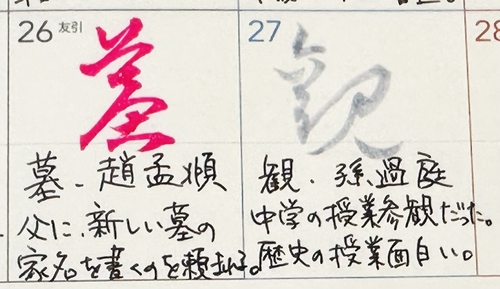 26 友引
墓
墓、趙孟頫
父に、新しい墓の
家名を書くのを頼まれる。
27
観
観、孫過庭
中学の授業参観だった。
歴史の授業面白い。
28